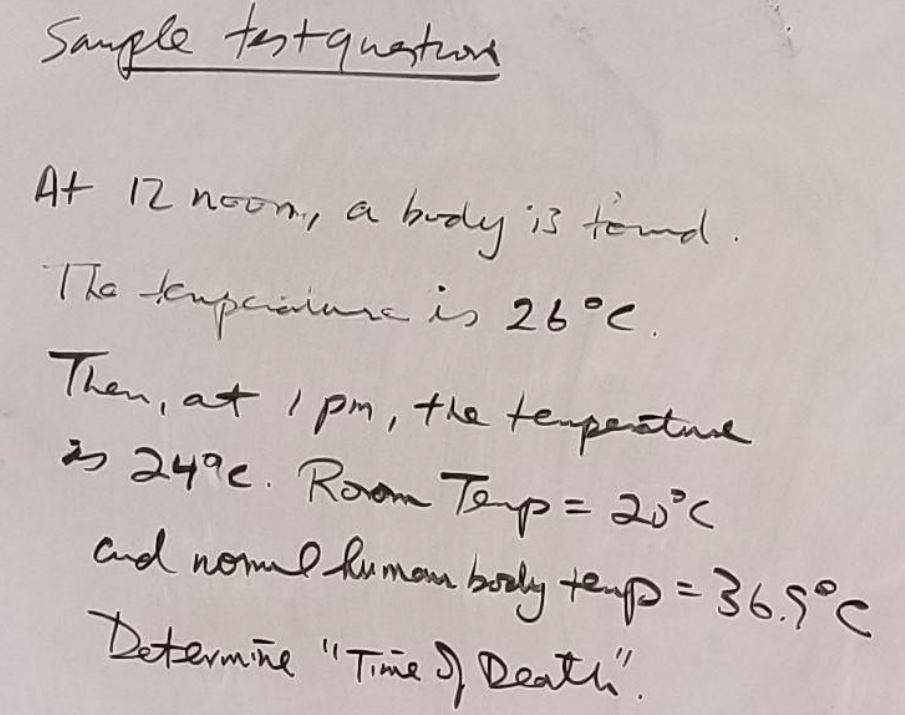 Sample test question
At 12 noon, a body is found.
The temperature is 26°C.
Then, at 1 pm, the temperature
is 24°C. Room Temp = 20°C
and normal human body temp = 36.9°C
Determine "Time of Death".